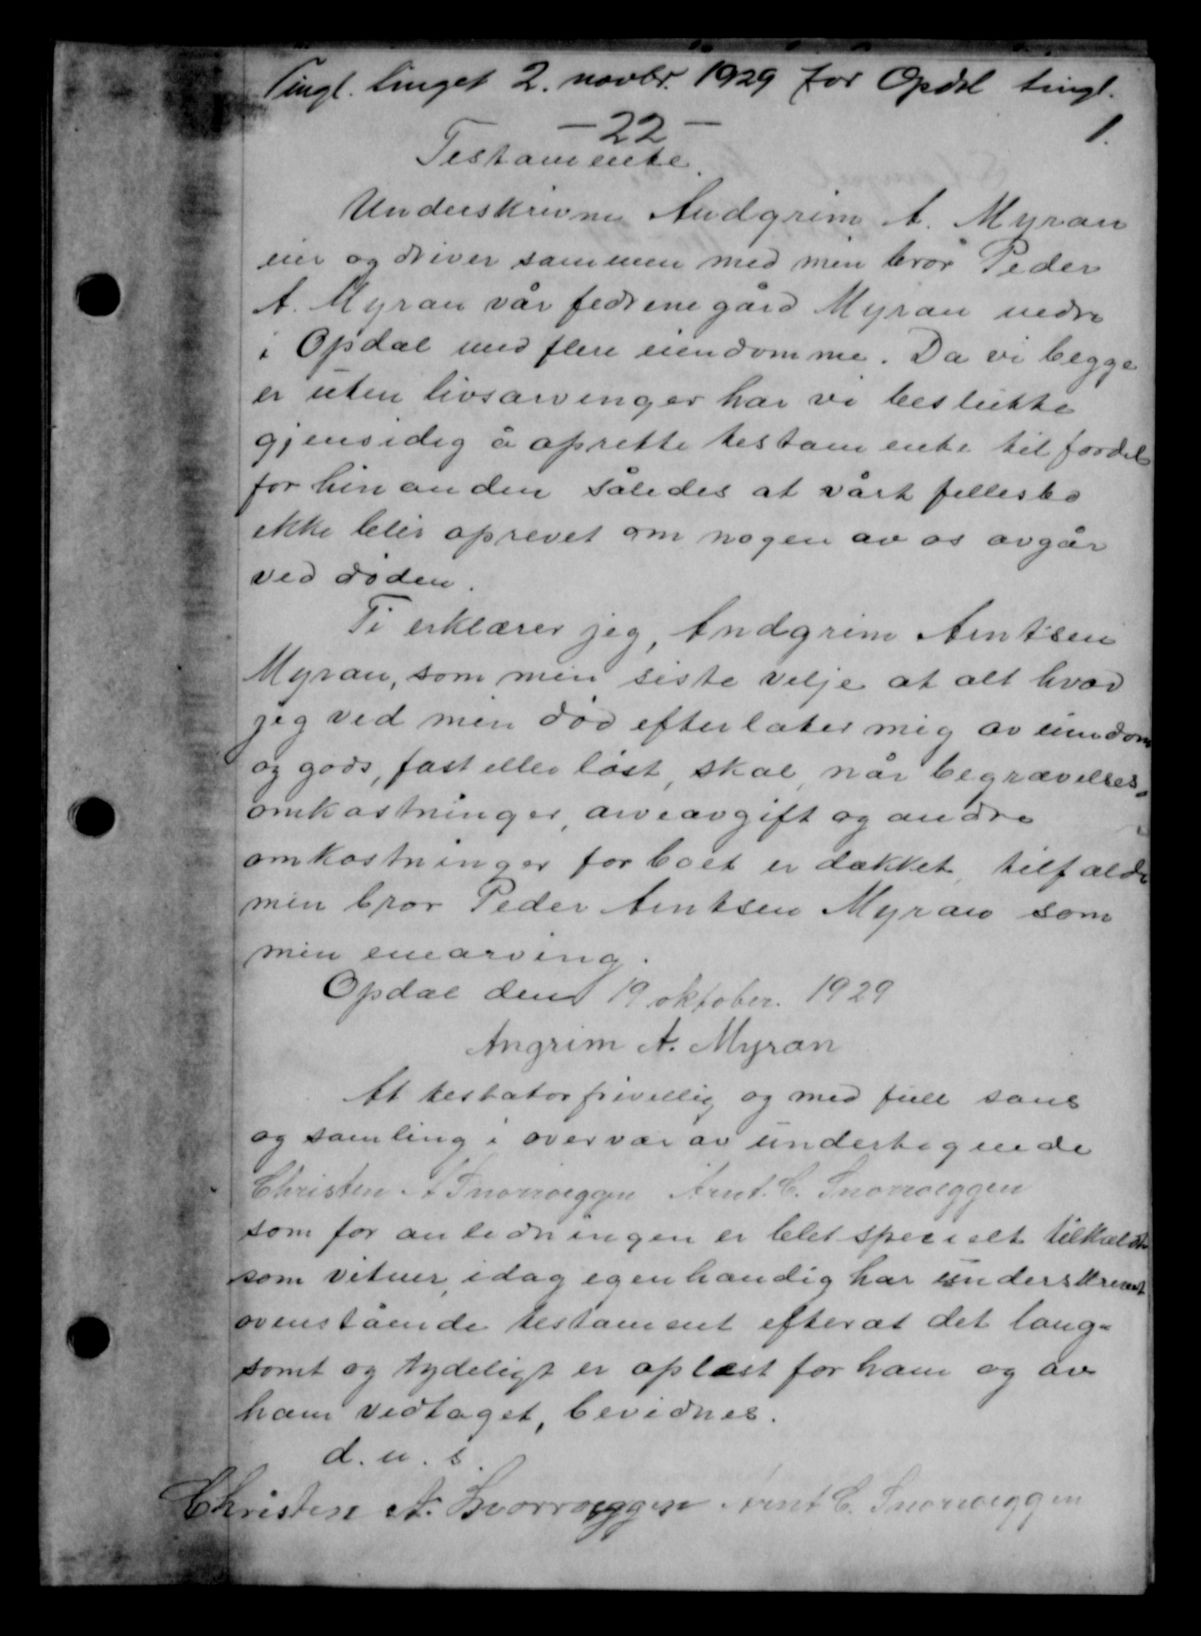 Tingl. tinget 2. novbr. 1929 for Opdal tingl.
1.
-22-
Testamente.
Underskrivne Andgrim A. Myran
eier og driver sammen med min bror Peder
A. Myran vår fedrenegård Myran nedre
i Opdal med flere eiendomme. Da vi begge
er uten livsarvinger har vi beslutte
gjensidig å oprette testamente til fordel
for hinanden således at vårt fellesbo
ikke blir oprevet om nogen av os avgår
ved døden.
Ti erklærer jeg, Andgrim Arntsen
Myran, som min siste vilje at alt hvad
jeg ved min død efterlater mig av eiendom
og gods, fast eller løst, skal, når begravelses-
omkostninger, arveavgift og andre
omkostninger for boet er dækket, tilfalde
min bror Peder Arntsen Myran som
min enearving.
Opdal den 19 oktober. 1929
Angrim A. Myran
At testator frivillig og med full sans
og samling i overvær av undertegnede
Christen A Snorroeggen Arnt. C. Snorroeggen
som for anledningen er blet specielt tilkaldt
som vitner, idag egenhændig har underskrevet
ovenstående testament efterat det lang-
somt og tydeligt er oplæst for ham og av
ham vedtaget, bevidnes.
d. u. s.
Christen A. Snorroeggen Arnt C. Snorroeggen